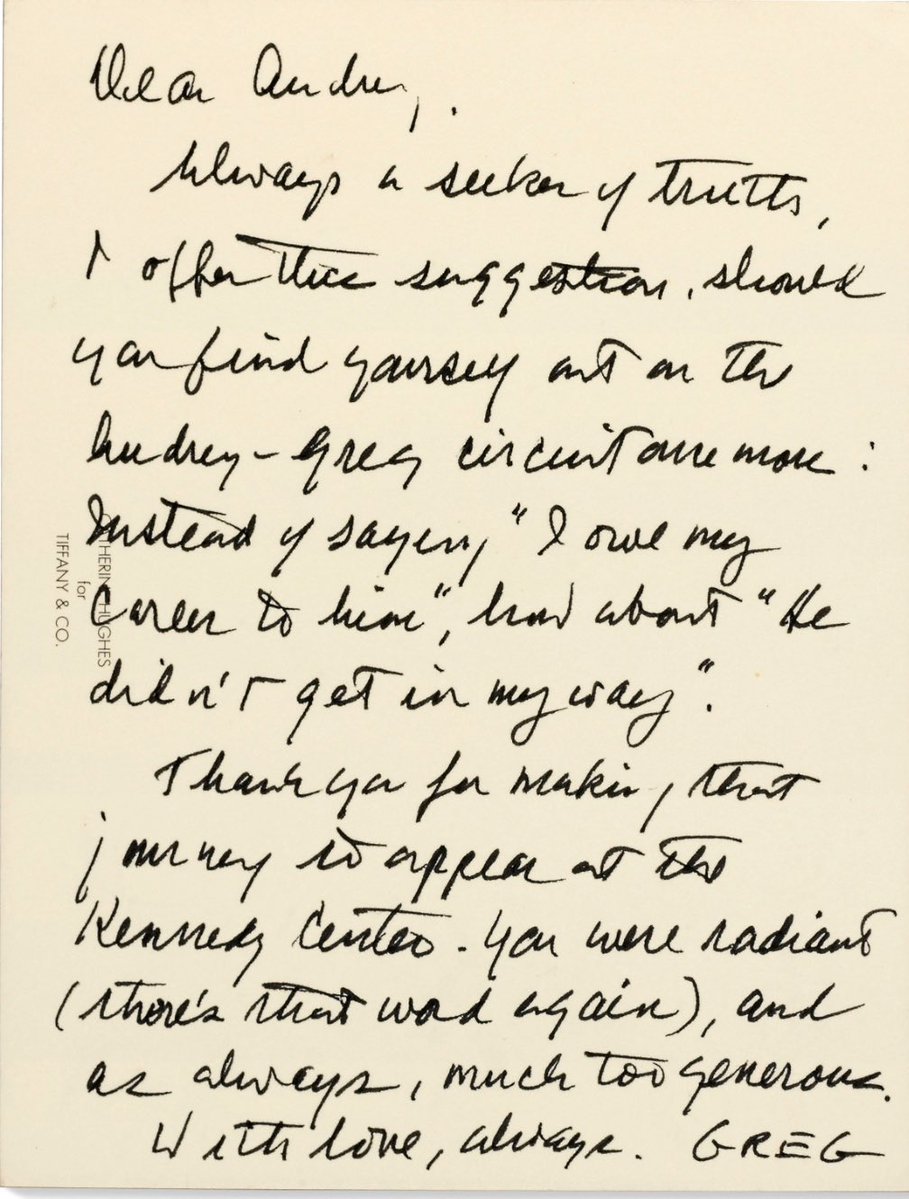 Dear Audrey,
Always a seeker of truths,
I offer this suggestion, should
you find yourself out on the
Audrey-Greg circuit once more:
Instead of saying, "I owe my
career to him", how about "He
didn't get in my way".
Thank you for making that
journey to appear at the
Kennedy Center. You were radiant
(there's that word again), and
as always, much too generous.
With love, always. GREG
HUGHES
for
TIFFANY & CO.